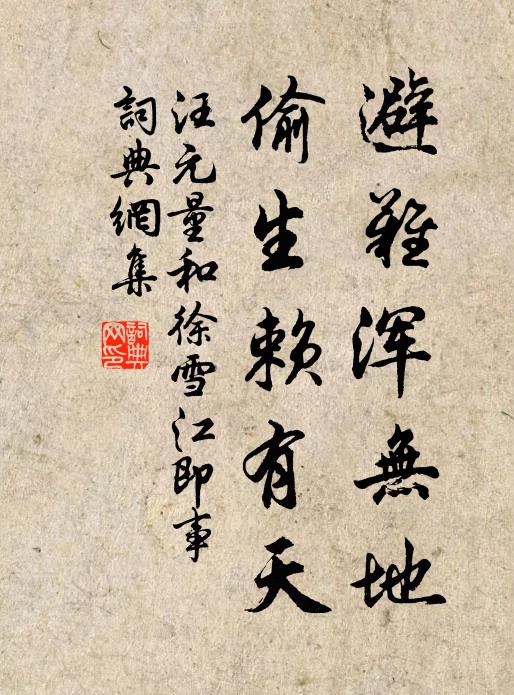 避難浑無地
偷生賴有天
汪元量和徐雪江即事
詞典網集
詞典網印